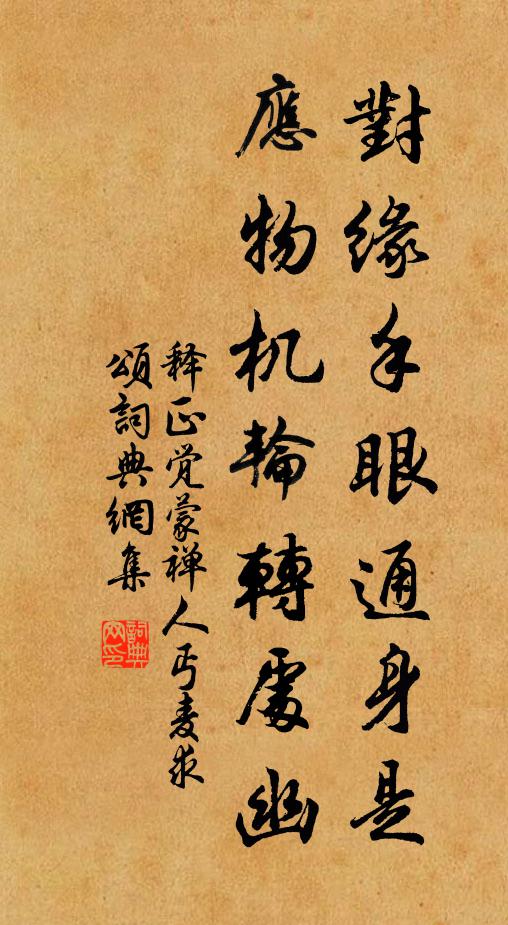 對緣手眼通身是
應物机輪轉處幽
释正觉蒙禅人丐麦求
頌詞典網集
詞典网印